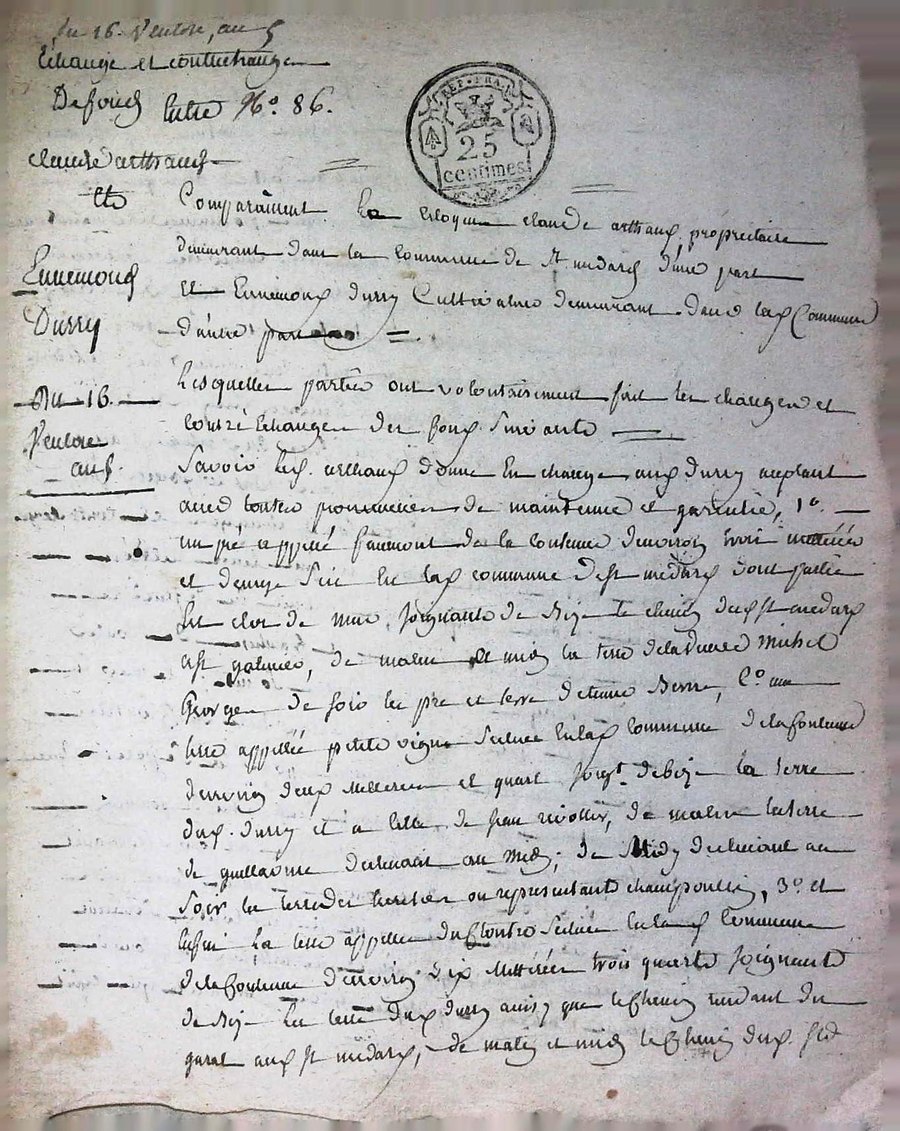 Du 16. Ventose, an 5
Echange et contrechange
De fond Entre No. 86.
REP. FRA.
25
centimes
claude arthaud
Et
Comparaiment Le Citoyen claude arthaud, propriétaire
demeurant dans la commune de St. medard d'une part
Ennemond
Et Ennemond durry Cultivateur demeurant dans lad. Commune
Durry
d'autre part
Lesquelles parties ont volontairement fait les changes et
Du 16.
contre Echanges des fonds suivants
Ventose
an 5.
Savoir led. arthaud donne En change aud. durry acceptant
avec toutes promesses de maintenue et garantie, 1o.
un pré appellé de la contenue d'environ trois
et demye sise En lad. commune de St. medard dont partie
Est clos de mur, joignants de Bize le chemin dud. St. medard
a St. galmier, de matin et midy la terre de la veuve Michel
George de soir les pré et terre d'etienne, 2o. une
terre appellée petite vigne située En lad. commune de la Contenue
d'environ deux metterées et quart joigt. de bize la terre
dud. durry et a celle de jean, de matin la terre
de guillaume au midy; de Midy declinant au
Soir la terre des heritiers ou representants, 3o. et
Enfin La terre appellée située En lad. Commune
de la Contenue d'environ dix metterées trois quarts joignants
de Bize La terre dud. durry ainsy que le chemin tendant de
aud. St. medard, de matin et midy le chemin dud. St.